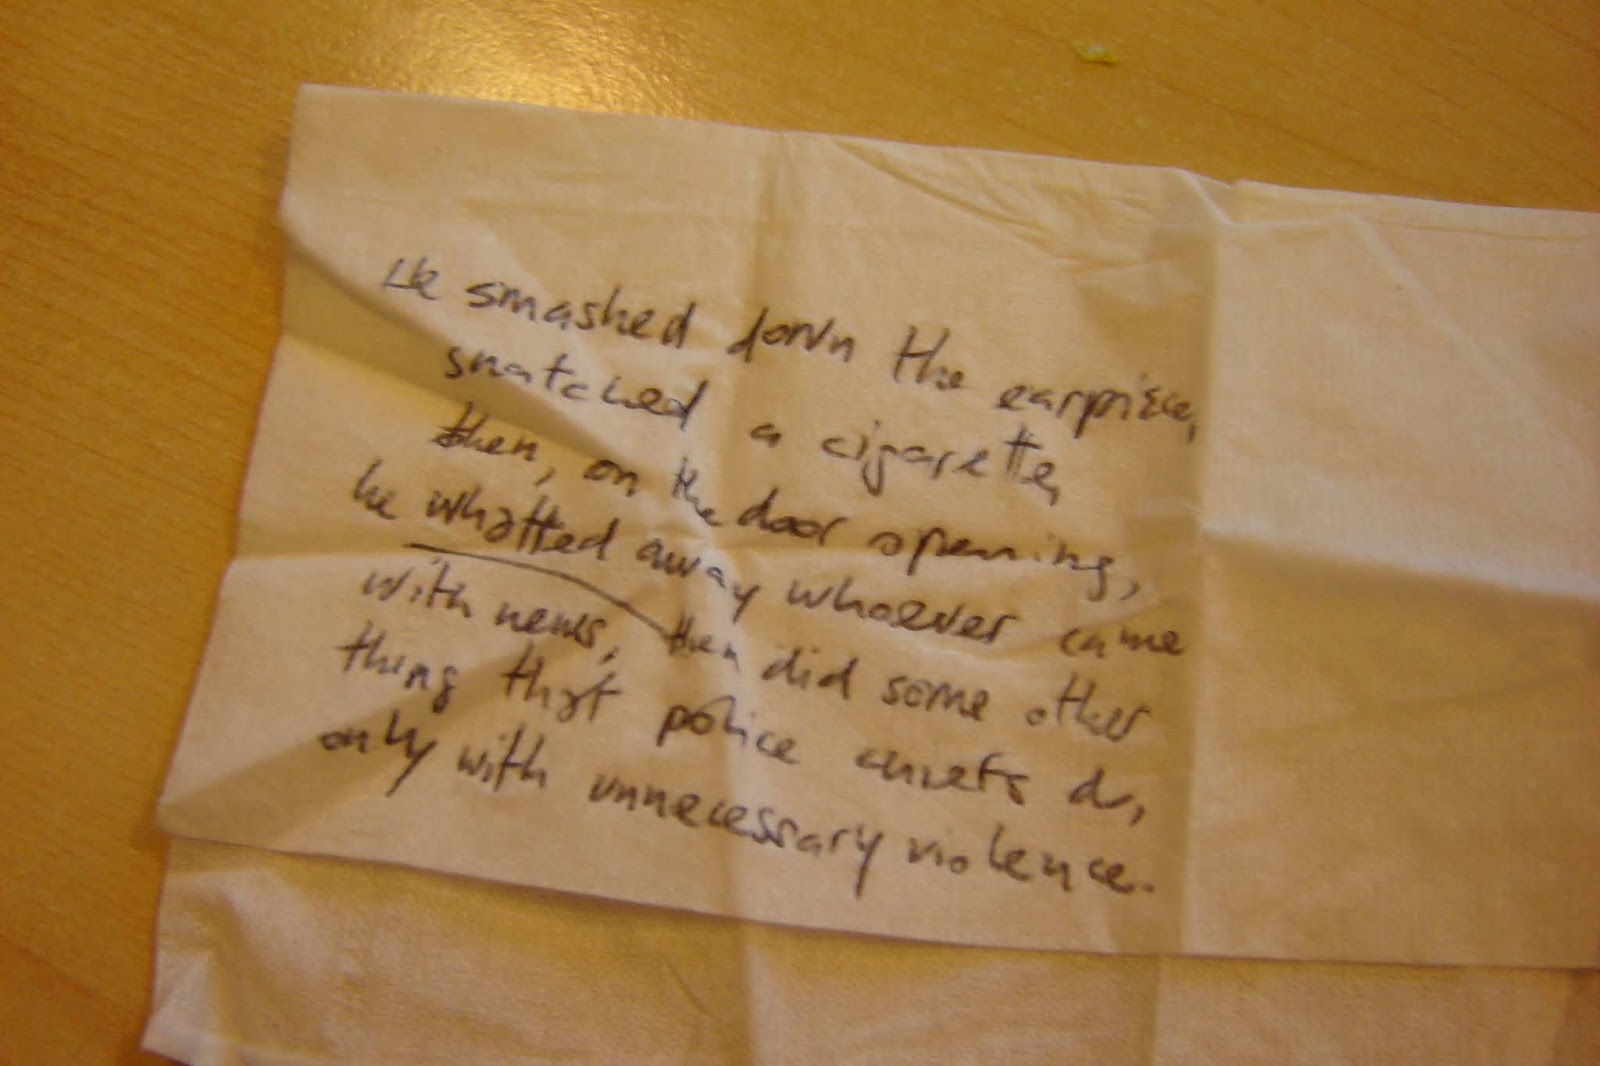 He smashed down the earpiece,
snatched a cigarette,
then, on the door opening,
he whatted away whoever came
with news, then did some other
thing that police chiefs do,
only with unnecessary violence.